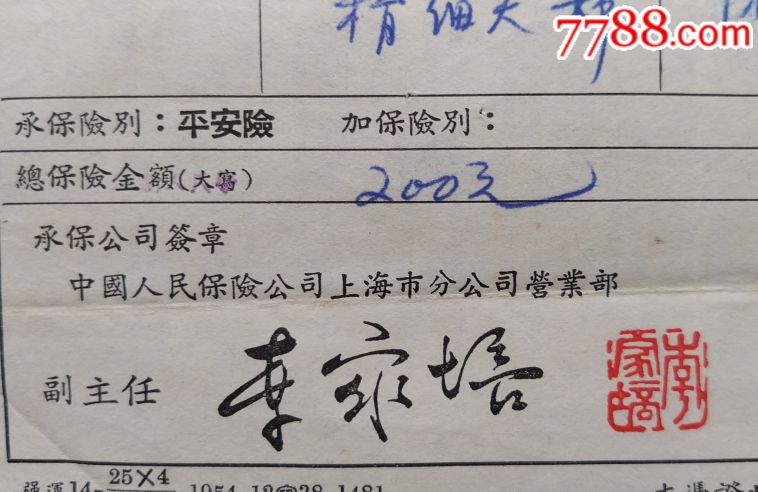 精细大
7788.com
承保險别：平安險 加保險别：
總保險金額(大寫) 200元
承保公司簽章
中國人民保險公司上海市分公司營業部
副主任 李家培
25×4
1954.12 28 1481